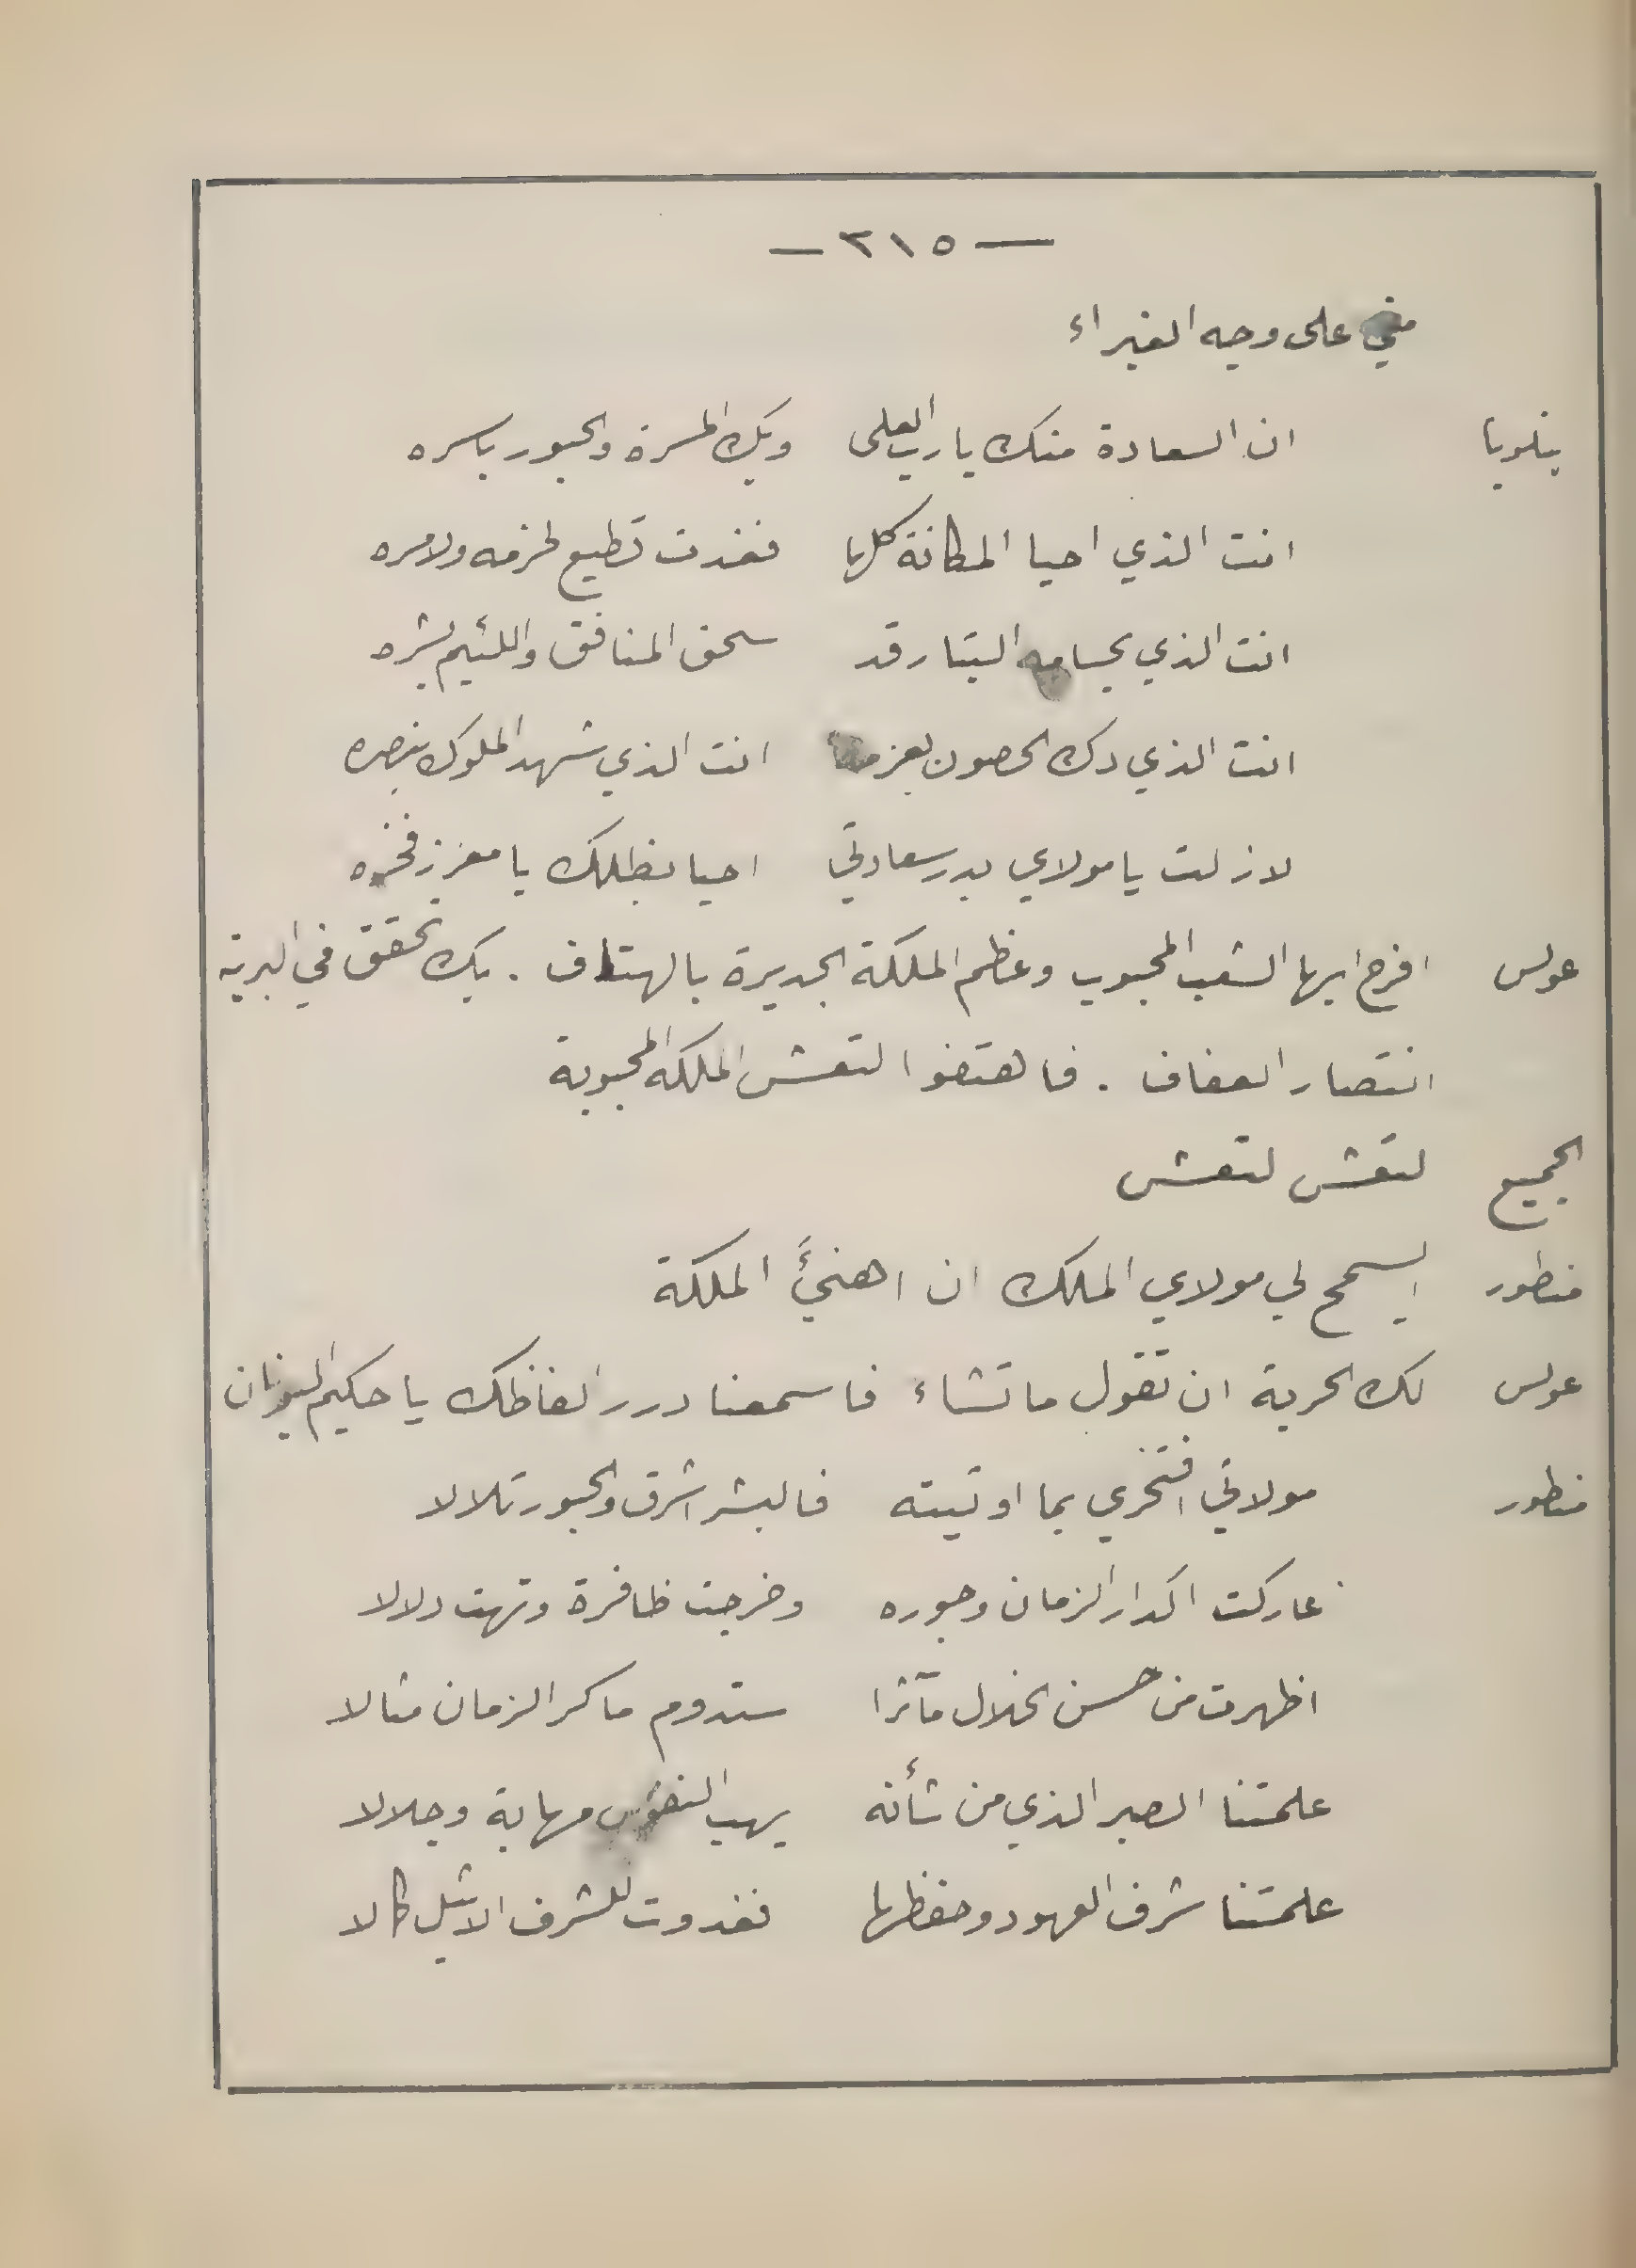 — ٣١٥ —
مني على وجه الغبراء
بنلوبا ان السعادة منك يا رب العلى وبك المسرة والحبور باسره
انت الذي احيا المكانة كلها فغدت تطيع لحزمه ولامره
انت الذي بحسامه البتار قد سحق المنافق واللئيم بشره
انت الذي دك الحصون بعزمه انت الذي شهد الملوك بنصره
لا زلت يا مولاي بدر سعادتي احيا بظلك يا معزز فخره
عولس افرح ايها الشعب المحبوب وعظم الملكة الجديرة بالهتاف . بك تحقق في البرية
انتصار العفاف . فاهتفوا لتعش الملكة المحبوبة
الجميع لتعش لتعش
منطور ايسمح لي مولاي الملك ان اهنئَ الملكة
عولس لك الحرية ان تقول ما تشاء فاسمعنا درر الفاظك يا حكيم اليونان
منطور مولاتي افتخري بما اوتيته فالبشر اشرق والحبور تلالا
عاركت اكدار الزمان وجوره وخرجت ظافرة وتهت دلالا
اظهرت من حسن الخلال مآثرا ستدوم ما كر الزمان مثالا
علمتنا الصبر الذي من شأنه يهب النفوس مهابة وجلالا
علمتنا شرف العهود وحفظها فغدوت للشرف الاثيل كمالا